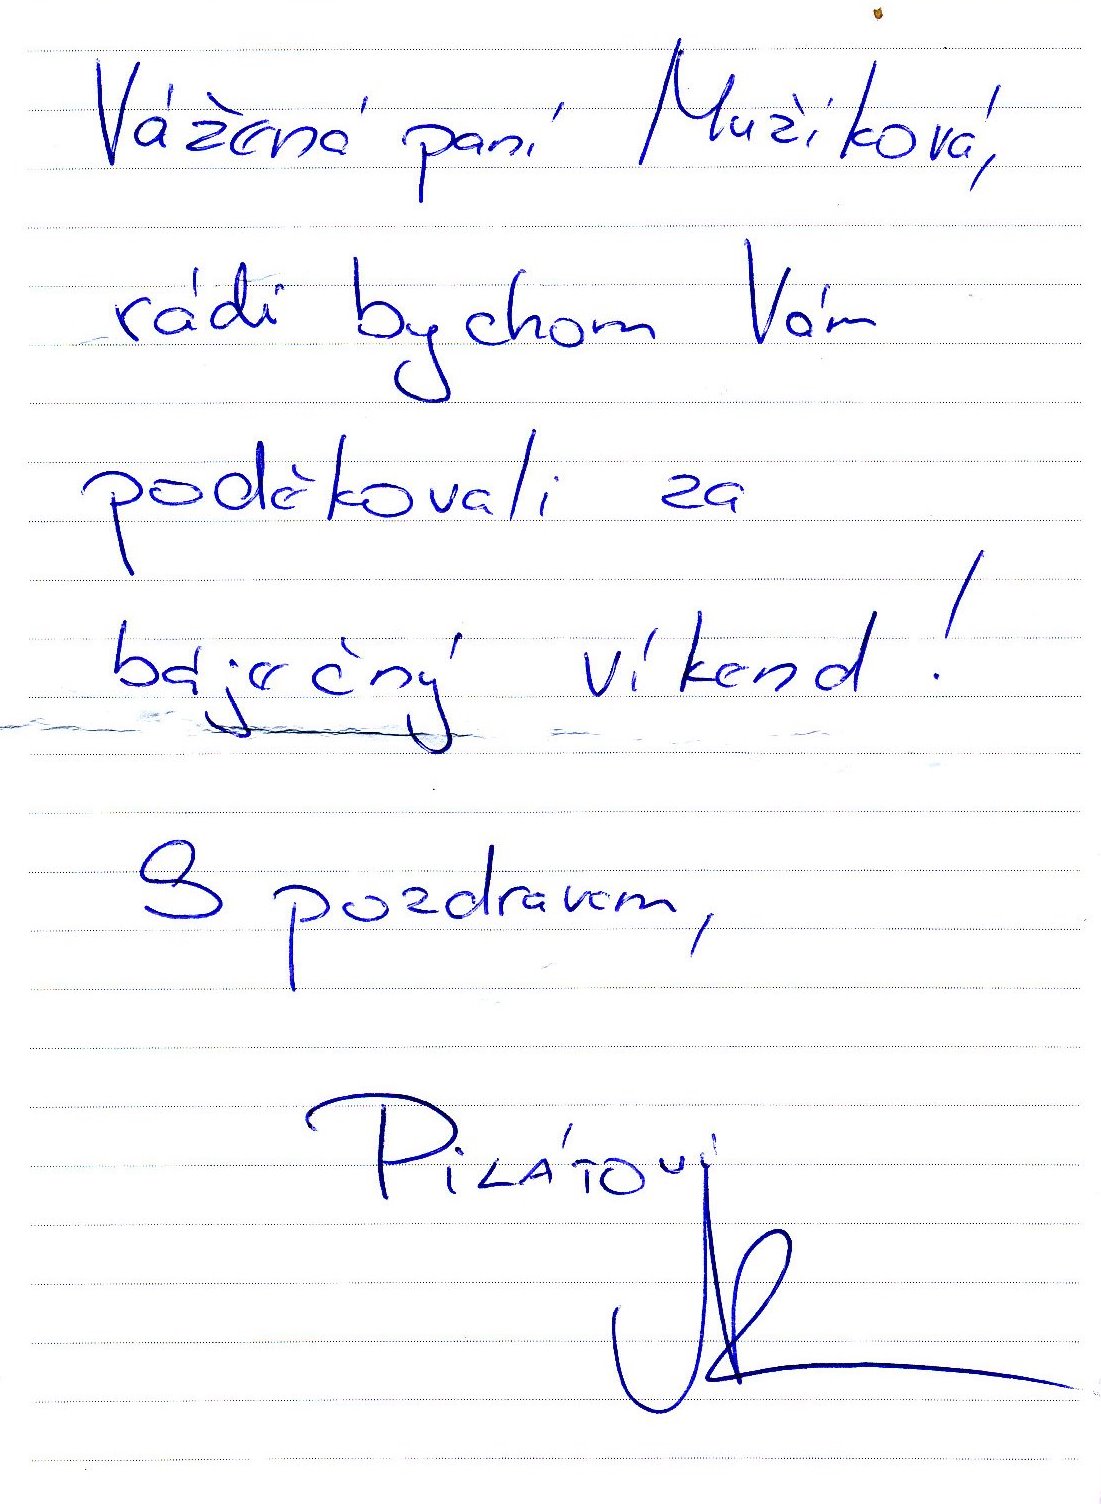 Vážená paní Mužíková,
rádi bychom Vám
poděkovali za
báječný víkend!
S pozdravem,
PILÁTOVI